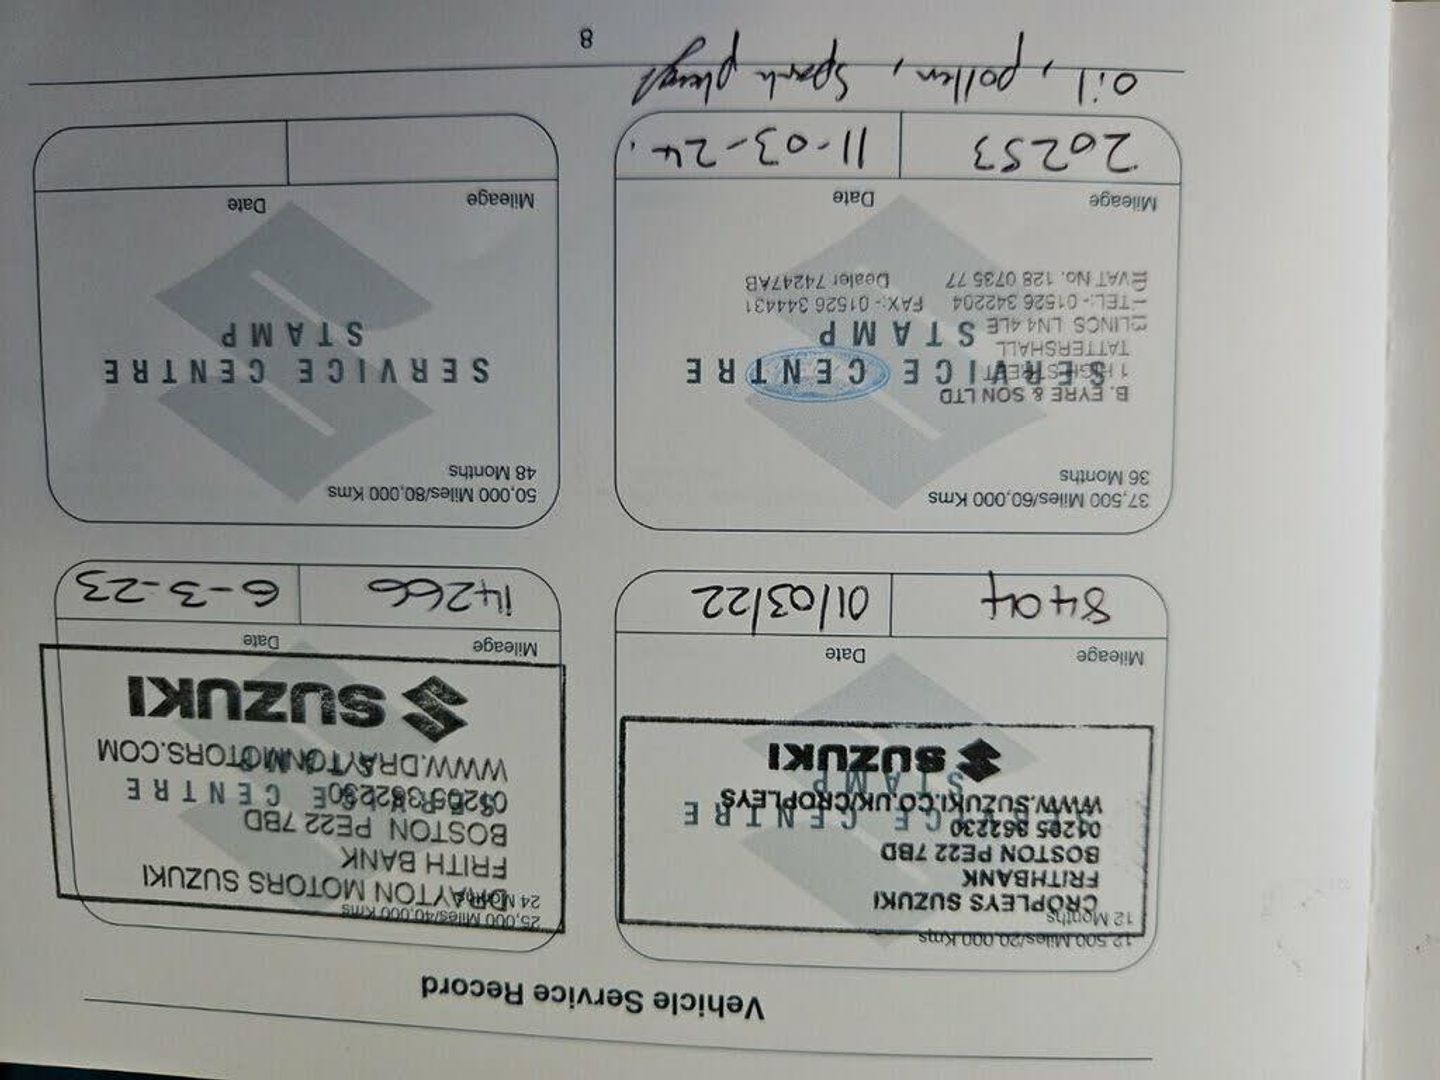 Vehicle Service Record
12,500 Miles/20,000 Kms
12 Months
CROPLEYS SUZUKI
FRITHBANK
BOSTON PE22 7BD
01205 362230
SERVICE CENTRE
WWW.SUZUKI.CO.UK/CROPLEYS
STAMP
SUZUKI
Mileage Date
8404 01/03/22
25,000 Miles/40,000 Kms
24 Months
DRAYTON MOTORS SUZUKI
FRITH BANK
BOSTON PE22 7BD
01205 362230
SERVICE CENTRE
WWW.DRAYTONMOTORS.COM
STAMP
SUZUKI
Mileage Date
14266 6-3-23
37,500 Miles/60,000 Kms
36 Months
B. EYRE & SON LTD
1 HIGH STREET
SERVICE CENTRE
TATTERSHALL
STAMP
LINCS LN4 4LE
TEL:- 01526 342204 FAX:- 01526 344431
VAT No. 128 0735 77 Dealer 74247AB
Mileage Date
20253 11-03-24.
oil, pollen, spark plugs
50,000 Miles/80,000 Kms
48 Months
SERVICE CENTRE
STAMP
Mileage Date
8